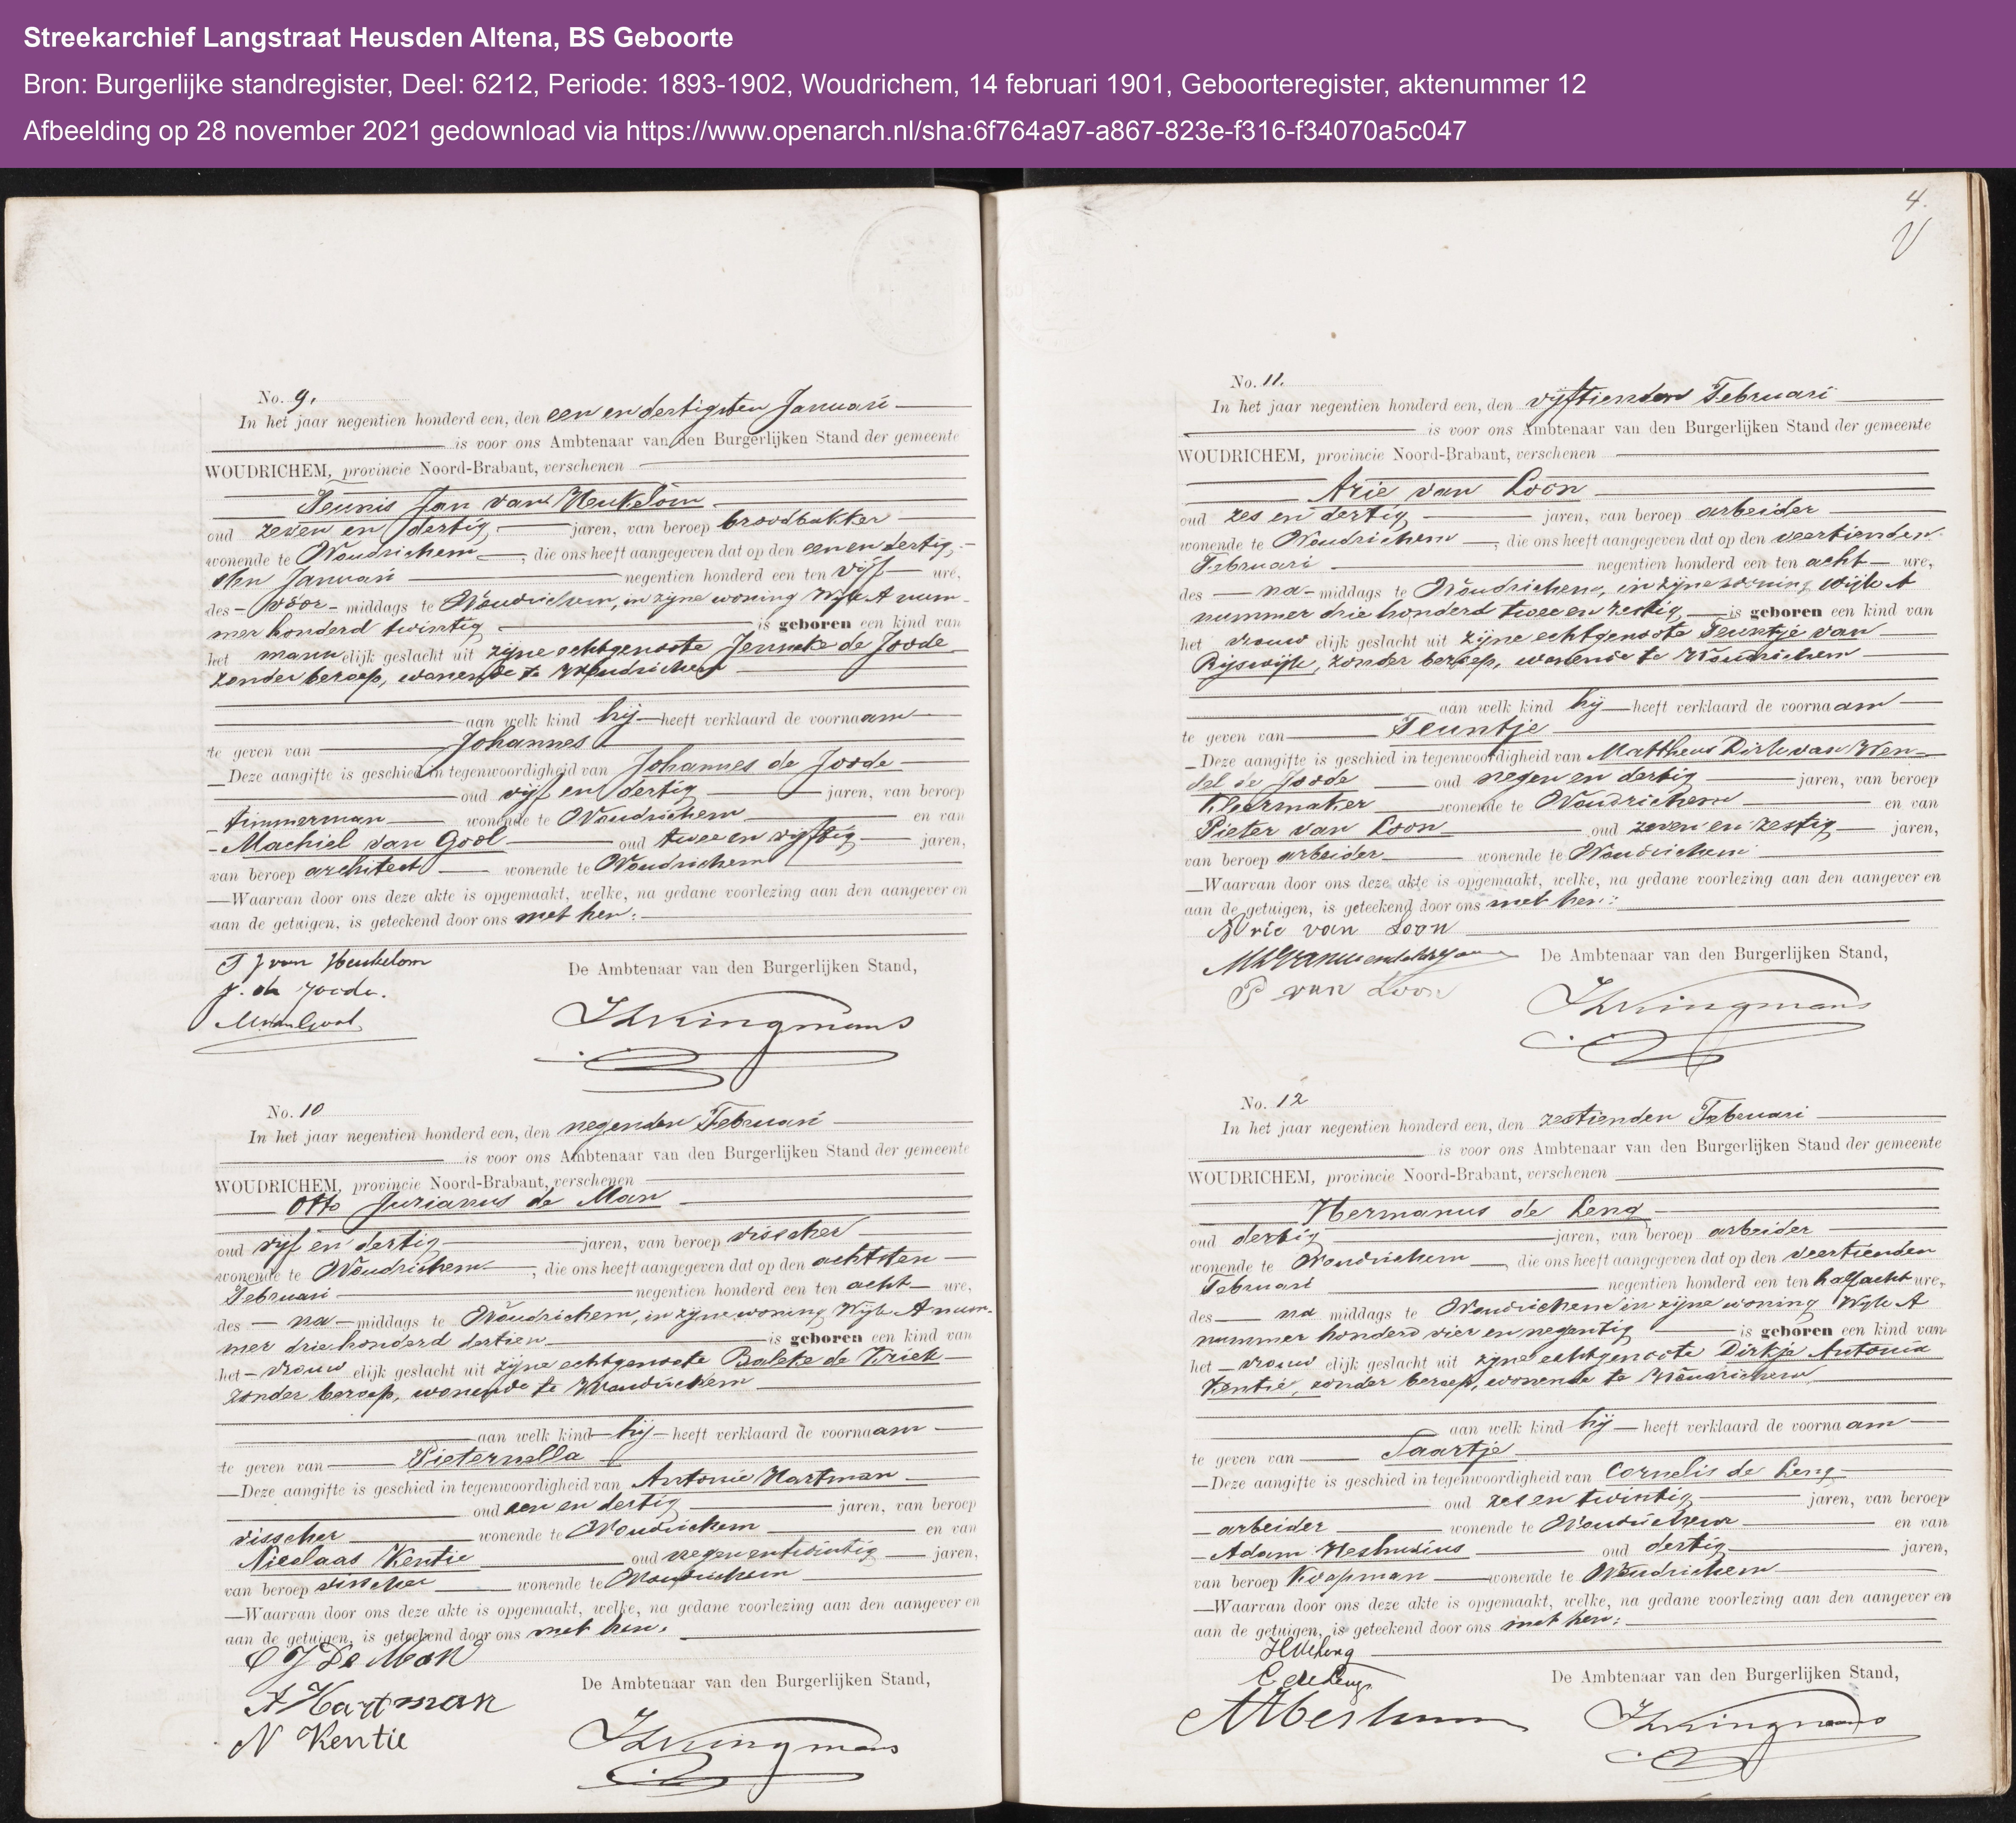 Streekarchief Langstraat Heusden Altena, BS Geboorte
Bron: Burgerlijke standregister, Deel: 6212, Periode: 1893-1902, Woudrichem, 14 februari 1901, Geboorteregister, aktenummer 12
Afbeelding op 28 november 2021 gedownload via https://www.openarch.nl/sha:6f764a97-a867-823e-f316-f34070a5c047
No. 9.
In het jaar negentien honderd een, den een en dertigsten Januari
is voor ons Ambtenaar van den Burgerlijken Stand der gemeente
WOUDRICHEM, provincie Noord-Brabant, verschenen
Teunis Jan van Heukelom
oud zeven en dertig, jaren, van beroep broodbakker
wonende te Woudrichem, die ons heeft aangegeven dat op den een en dertig-
sten Januari negentien honderd een ten vijf ure,
des voor-middags te Woudrichem, in zijne woning Wijk A num-
mer honderd twintig is geboren een kind van
het mannelijk geslacht uit zijne echtgenoote Jenneke de Joode
zonder beroep, wonende te Woudrichem
aan welk kind hij heeft verklaard de voornaam
te geven van Johannes
Deze aangifte is geschied in tegenwoordigheid van Johannes de Joode
oud vijf en dertig jaren, van beroep
timmerman wonende te Woudrichem en van
Machiel van Gool oud twee en vijftig jaren,
van beroep architect wonende te Woudrichem
Waarvan door ons deze akte is opgemaakt, welke, na gedane voorlezing aan den aangever en
aan de getuigen, is geteekend door ons met hen:
T J van Heukelom
De Ambtenaar van den Burgerlijken Stand,
J. de Joode.
MvanGool
Kingmans
No. 10
In het jaar negentien honderd een, den negenden Februari
is voor ons Ambtenaar van den Burgerlijken Stand der gemeente
WOUDRICHEM, provincie Noord-Brabant, verschenen
Otto Jurianus de Man
oud vijf en dertig jaren, van beroep visscher
wonende te Woudrichem, die ons heeft aangegeven dat op den achtsten
Februari negentien honderd een ten acht ure,
des na-middags te Woudrichem, in zijne woning Wijk A num-
mer drie honderd dertien is geboren een kind van
het vrouwelijk geslacht uit zijne echtgenoote Baleke de Kriek
zonder beroep, wonende te Woudrichem
aan welk kind hij heeft verklaard de voornaam
te geven van Pieternella
Deze aangifte is geschied in tegenwoordigheid van Antonie Hartman
oud een en dertig jaren, van beroep
visscher wonende te Woudrichem en van
Nicolaas Kentie oud negen en twintig jaren,
van beroep visscher wonende te Woudrichem
Waarvan door ons deze akte is opgemaakt, welke, na gedane voorlezing aan den aangever en
aan de getuigen, is geteekend door ons met hen.
O J De Man
De Ambtenaar van den Burgerlijken Stand,
A Hartman
N Kentie
Kingmans
4.
No. 11.
In het jaar negentien honderd een, den vijftienden Februari
is voor ons Ambtenaar van den Burgerlijken Stand der gemeente
WOUDRICHEM, provincie Noord-Brabant, verschenen
Arie van Loon
oud zes en dertig jaren, van beroep arbeider
wonende te Woudrichem, die ons heeft aangegeven dat op den veertienden
Februari negentien honderd een ten acht ure,
des na-middags te Woudrichem, in zijne woning Wijk A
nummer drie honderd twee en zestig, is geboren een kind van
het vrouwelijk geslacht uit zijne echtgenoote Teuntje van
Rijswijk, zonder beroep, wonende te Woudrichem
aan welk kind hij heeft verklaard de voornaam
te geven van Teuntje
Deze aangifte is geschied in tegenwoordigheid van Mattheus Dirk van Wen-
del de Joode oud negen en dertig jaren, van beroep
kleermaker wonende te Woudrichem en van
Pieter van Loon oud zeven en zestig jaren,
van beroep arbeider wonende te Woudrichem
Waarvan door ons deze akte is opgemaakt, welke, na gedane voorlezing aan den aangever en
aan de getuigen, is geteekend door ons met hen:
Arie van Loon
De Ambtenaar van den Burgerlijken Stand,
P van Loon
Kingmans
No. 12
In het jaar negentien honderd een, den zestienden Februari
is voor ons Ambtenaar van den Burgerlijken Stand der gemeente
WOUDRICHEM, provincie Noord-Brabant, verschenen
Hermanus de Leng
oud dertig jaren, van beroep arbeider
wonende te Woudrichem, die ons heeft aangegeven dat op den veertienden
Februari negentien honderd een ten half acht ure,
des na middags te Woudrichem in zijne woning Wijk A
nummer honderd vier en negentig is geboren een kind van
het vrouwelijk geslacht uit zijne echtgenoote Dirkje Antonia
Kentie, zonder beroep, wonende te Woudrichem
aan welk kind hij heeft verklaard de voornaam
te geven van Taartje
Deze aangifte is geschied in tegenwoordigheid van Cornelis de Leng
oud zes en twintig jaren, van beroep
arbeider wonende te Woudrichem en van
Adam Heshusius oud dertig jaren,
van beroep Koopman wonende te Woudrichem
Waarvan door ons deze akte is opgemaakt, welke, na gedane voorlezing aan den aangever en
aan de getuigen, is geteekend door ons met hen:
H de Leng
C de Leng
De Ambtenaar van den Burgerlijken Stand,
Kingmans